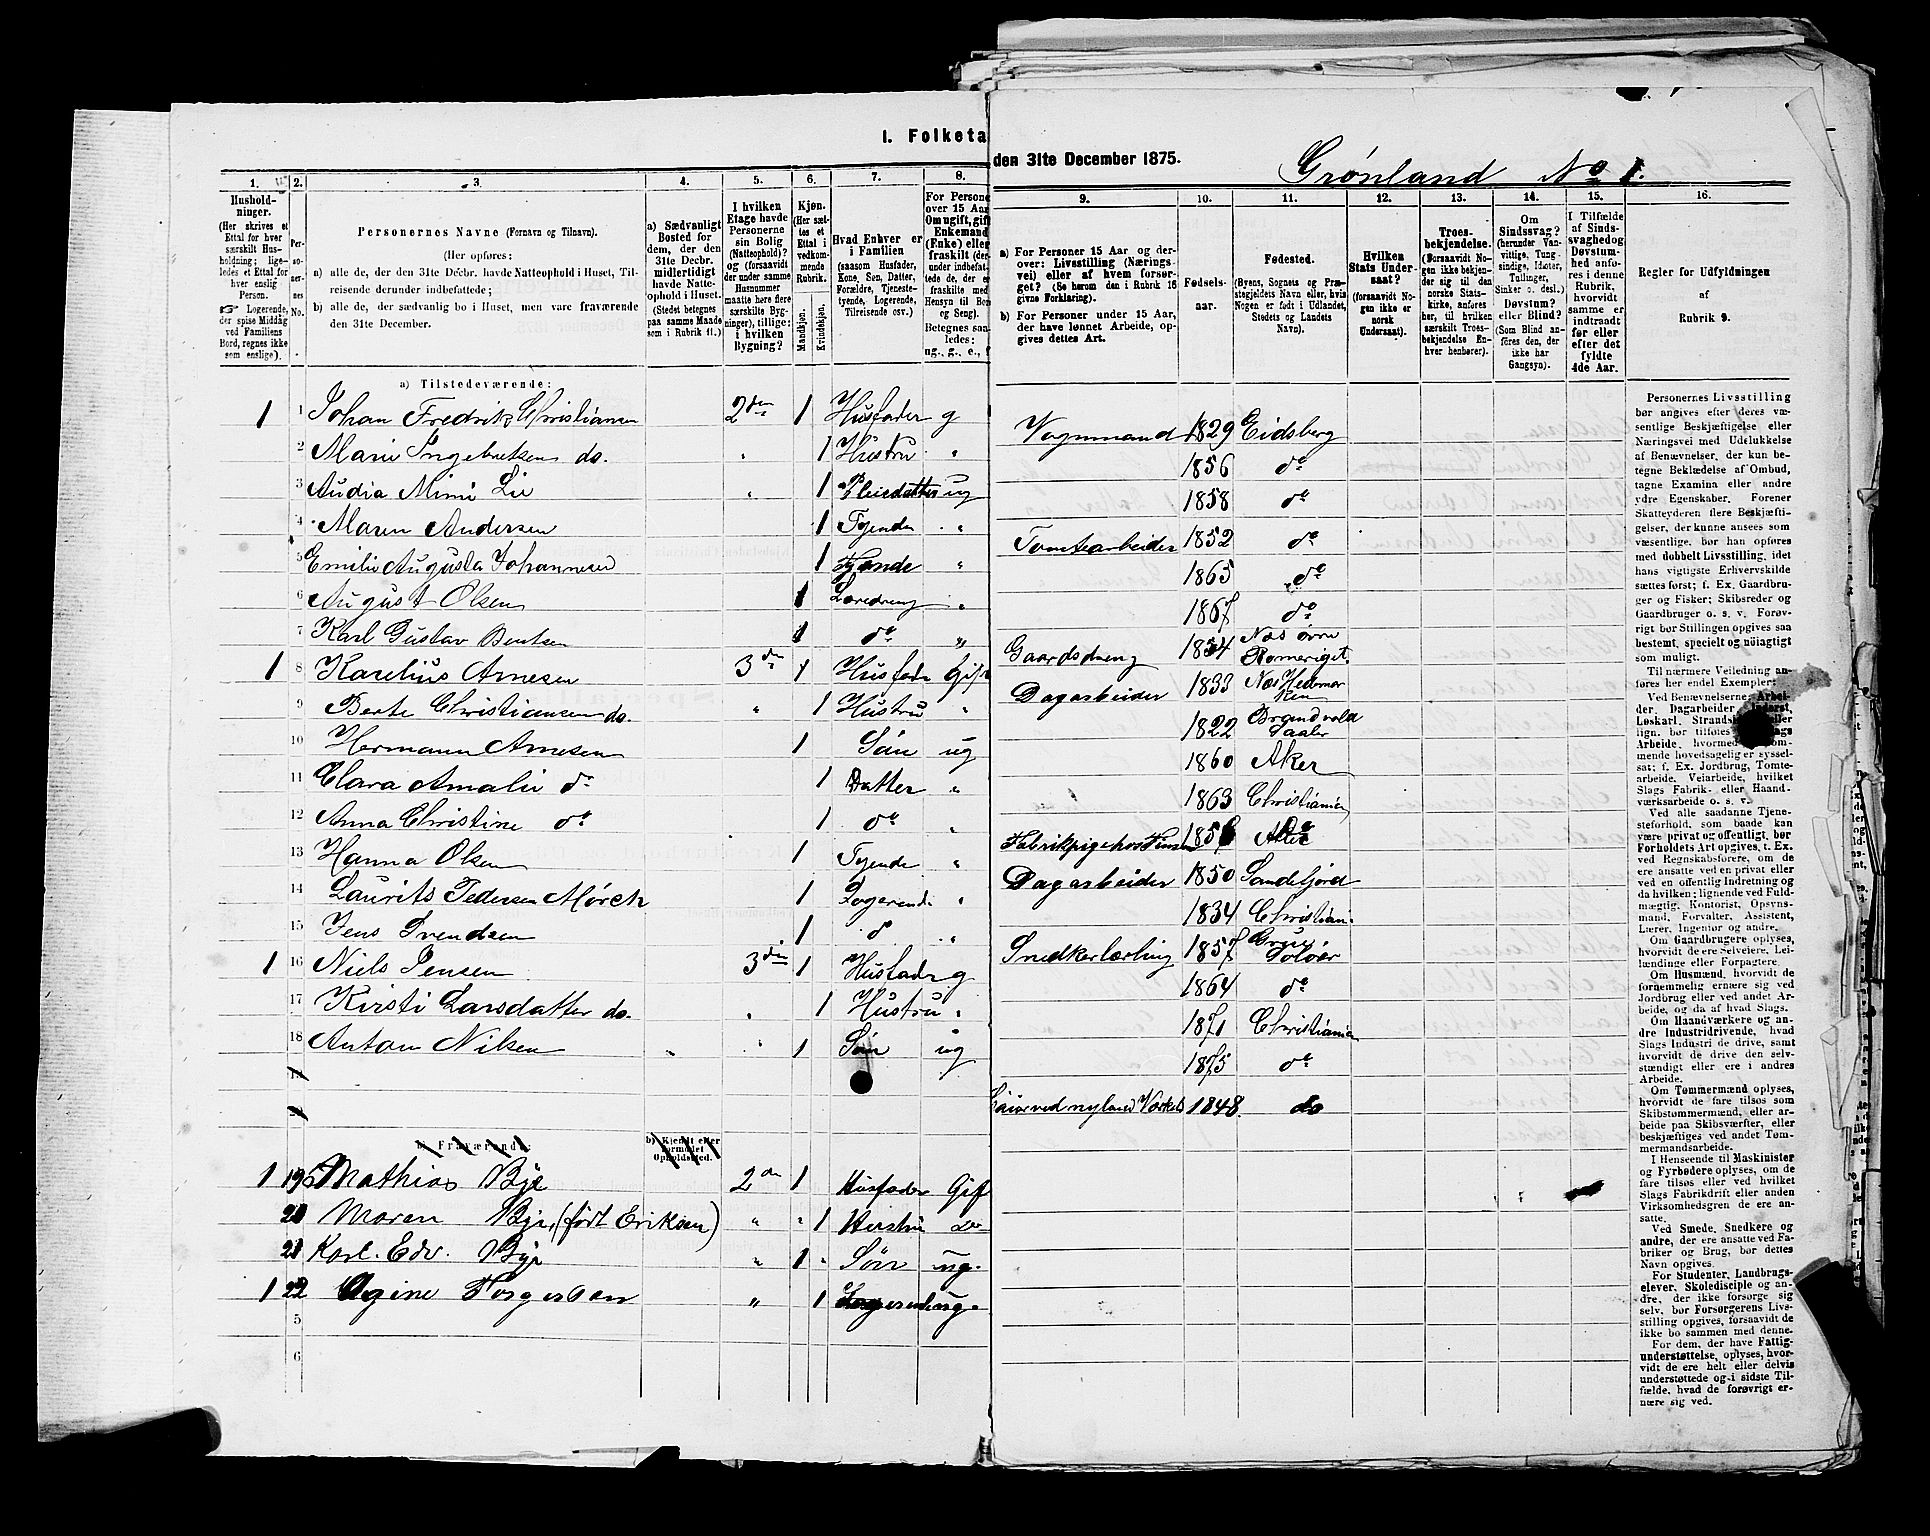 I. Folketa
den 31te December 1875.
Grønland No 1.
1.
Hushold-
ninger.
(Her skrives et
Ettal for hver
særskilt Hus-
holdning; lige-
ledes et Ettal for
hver enslig
Person.
☞ Logerende,
der spise Middag
ved Familiens
Bord, regnes ikke
som enslige).
2.
Per-
so-
ner-
nes
No.
3.
Personernes Navne (Fornavn og Tilnavn).
(Her opføres:
a) alle de, der den 31te Decbr. havde Natteophold i Huset, Til-
reisende derunder indbefattede;
b) alle de, der sædvanlig bo i Huset, men vare fraværende
den 31te December.
4.
a) Sædvanligt
Bosted for
dem, der den
31te Decbr.
midlertidigt
havde Natte-
ophold i Huset.
(Stedet betegnes
paa samme Maade
som i Rubrik 11.)
5.
I hvilken
Etage havde
Personerne
sin Bolig
(Natteophold)?
og (forsaavidt
der under samme
Husnummer
maatte høre flere
særskilte Byg-
ninger), tillige:
i hvilken
Bygning?
6.
Kjøn.
(Her sæt-
tes et
Ettal i
vedkom-
mende
Rubrik.)
Mandkjøn.
Kvindekjøn.
7.
Hvad Enhver er
i Familien
(saasom Husfader,
Kone, Søn, Datter,
Forældre, Tjeneste-
tyende, Logerende,
Tilreisende osv.)
8.
For Persone
over 15 Aar
Om ugift, gift
Enkemand
(Enke) eller
fraskilt (der-
under indbefat-
tede de, der ere
fraskilte med
Hensyn til Bo
og Seng).
Betegnes saa-
ledes:
ug., g., e., f
9.
a) For Personer 15 Aar og der-
over: Livsstilling (Nærings-
vei) eller af hvem forsør-
get? (Se herom den i Rubrik 16
givne Forklaring).
b) For Personer under 15 Aar,
der have lønnet Arbeide, op-
gives dettes Art.
10.
Fødsels-
aar.
11.
Fødested.
(Byens, Sognets og Præ-
stegjeldets Navn eller, hvis
Nogen er født i Udlandet,
Stedets og Landets
Navn).
12.
Hvilken
Stats Under-
saat?
(forsaavidt No-
gen ikke er
norsk
Undersaat).
13.
Troes-
bekjendelse.
(Forsaavidt No-
gen ikke bekjen-
der sig til den
norske Stats-
kirke, anføres
her, til hvilken
særskilt Troes-
bekjendelse En-
hver henhører).
14.
Om
Sindssvag?
(herunder Van-
vittige, Tung-
sindige, Idioter,
Tullinger,
Sinker o. desl.)
Døvstum?
eller Blind?
(Som Blind an-
føres den, der
ikke har
Gangsyn).
15.
I Tilfælde
af Sinds-
svaghed og
Døvstum-
hed anfø-
res i denne
Rubrik,
hvorvidt
samme er
indtraadt
før eller
efter det
fyldte
4de Aar.
16.
Regler for Udfyldningen
af
Rubrik 9.
a) Tilstedeværende:
1 1 Johan Fredrik Christiansen 2den 1 Husfader g
Vognmand 1829 Eidsberg
2 Marie Ingebretsen do. 1 Hustru
1856 do
3 Audia Mimi Lie 1 Pleiedatter ug
1858 do
4 Maren Andersen 1 Tyende
Tomtearbeider 1852 do
5 Emilie Augusta Johannesen 1 Tyende
1865 do
6 August Olsen 1 Læredreng
1867 do
7 Karl Gustav Bentsen 1 do
Gaardsdreng 1854 Næs øvre
Romeriget.
1 8 Karelius Arnesen 3die 1 Husfader Gift
Dagarbeider 1833 Næs Hedemar
ken
9 Berte Christiansen do. 1 Hustru
1822 Brandvold
10 Hermann Arnesen 1 Søn ug
1860 Aker
11 Clara Amalie do 1 Datter
1863 Christiania
12 Anna Christine do 1 do
13 Hanna Olsen 1 Tyende
Dagarbeider 1850 Sandefjord
14 Laurits Pedersen Mørch 1 Logerende
1834 Christian.
15 Jens Svendsen 1 d
Snedkerlærling 1857 Grue
Soløer
1 16 Niels Jensen 3die 1 Husfader g
1864 do
17 Kirsti Larsdatter do. 1 Hustru
1871 Christiania
18 Anton Nilsen 1 Søn ug
1875 do
1848. do
b) Fraværende:
b) Kjendt eller
formodet
Opholdssted.
1 19 Mathias Bye 2den 1 Husfader Gift
20 Maren Bye, (født Eriksen) " 1 Hustru Do
21 Karl. Edv. Bye " 1 Søn ug.
1 22 Agine Torgersen " 1 Logerende ug.
5
6
Personernes Livsstilling
bør angives efter deres væ-
sentlige Beskjæftigelse eller
Næringsvei med Udelukkelse
af Benævnelser, der kun be-
tegne Beklædelse af Ombud,
tagne Examina eller andre
ydre Egenskaber. Forener
Skatteyderen flere Beskjæfti-
gelser, der kunne ansees som
væsentlige, bør han opføres
med dobbelt Livsstilling, idet
hans vigtigste Erhvervskilde
sættes først; f. Ex. Gaardbru-
ger og Fisker; Skibsreder og
Gaardbruger o. s. v. Forøv-
rigt bør Stillingen opgives saa
bestemt, specielt og nøiagtigt
som muligt.
Til nærmere Veiledning an-
føres her endel Exempler:
Ved Benævnelserne: Arbei-
der, Dagarbeider, Inderst,
Løskarl, Strandsidder eller
lign. bør tilføies det Slags
Arbeide, hvormed Vedkom-
mende hovedsagelig er syssel-
sat; f. Ex. Jordbrug, Tomte-
arbeide, Veiarbeide, hvilket
Slags Fabrik- eller Haand-
værksarbeide o. s. v.
Ved alle saadanne Tjene-
steforhold, som baade kan
være privat og offentligt, bør
Forholdets Art opgives, t. Ex.
ved Regnskabsførere, om de
ere ansatte ved en privat eller
ved en offentlig Indretning og
da hvilken; lignende ved Fuld-
mægtig, Kontorist, Opsyns-
mand, Forvalter, Assistent,
Lærer, Ingeniør og andre.
Om Gaardbrugere oplyses,
hvorvidt de ere Selveiere, Lei-
lændinge eller Forpagtere.
Om Husmænd, hvorvidt de
fornemmelig ernære sig ved
Jordbrug eller ved andet Ar-
beide, og da af hvad Slags.
Om Haandværkere og an-
dre Industridrivende, hvad
Slags Industri de drive, samt
hvorvidt de drive den selv-
stændigt eller ere i andres
Arbeide.
Om Tømmermænd oplyses,
hvorvidt de fare tilsøs som
Skibstømmermænd, eller ar-
beide paa Skibsværfter, eller
beskjæftiges ved andet Tøm-
mermandsarbeide.
I Henseende til Maskinister
og Fyrbødere oplyses, om de
fare tilsøs eller ved hvilket
Slags Fabrikdrift eller anden
Virksomhedsgren de ere an-
satte.
Ved Smede, Snedkere og
andre, der ere ansatte ved Fa-
briker og Brug, bør dettes
Navn opgives.
For Studenter, Landbrugs-
elever, Skoledisciple og an-
dre, der ikke forsørge sig
selv, bør Forsørgerens Livs-
stilling opgives, forsaavidt de
ikke bo sammen med denne.
For dem, der have Fattig-
understøttelse, oplyses, hvor-
vidt de ere helt eller delvis
understøttede og i sidste Til-
fælde, hvad de forøvrigt er-
nære sig ved.